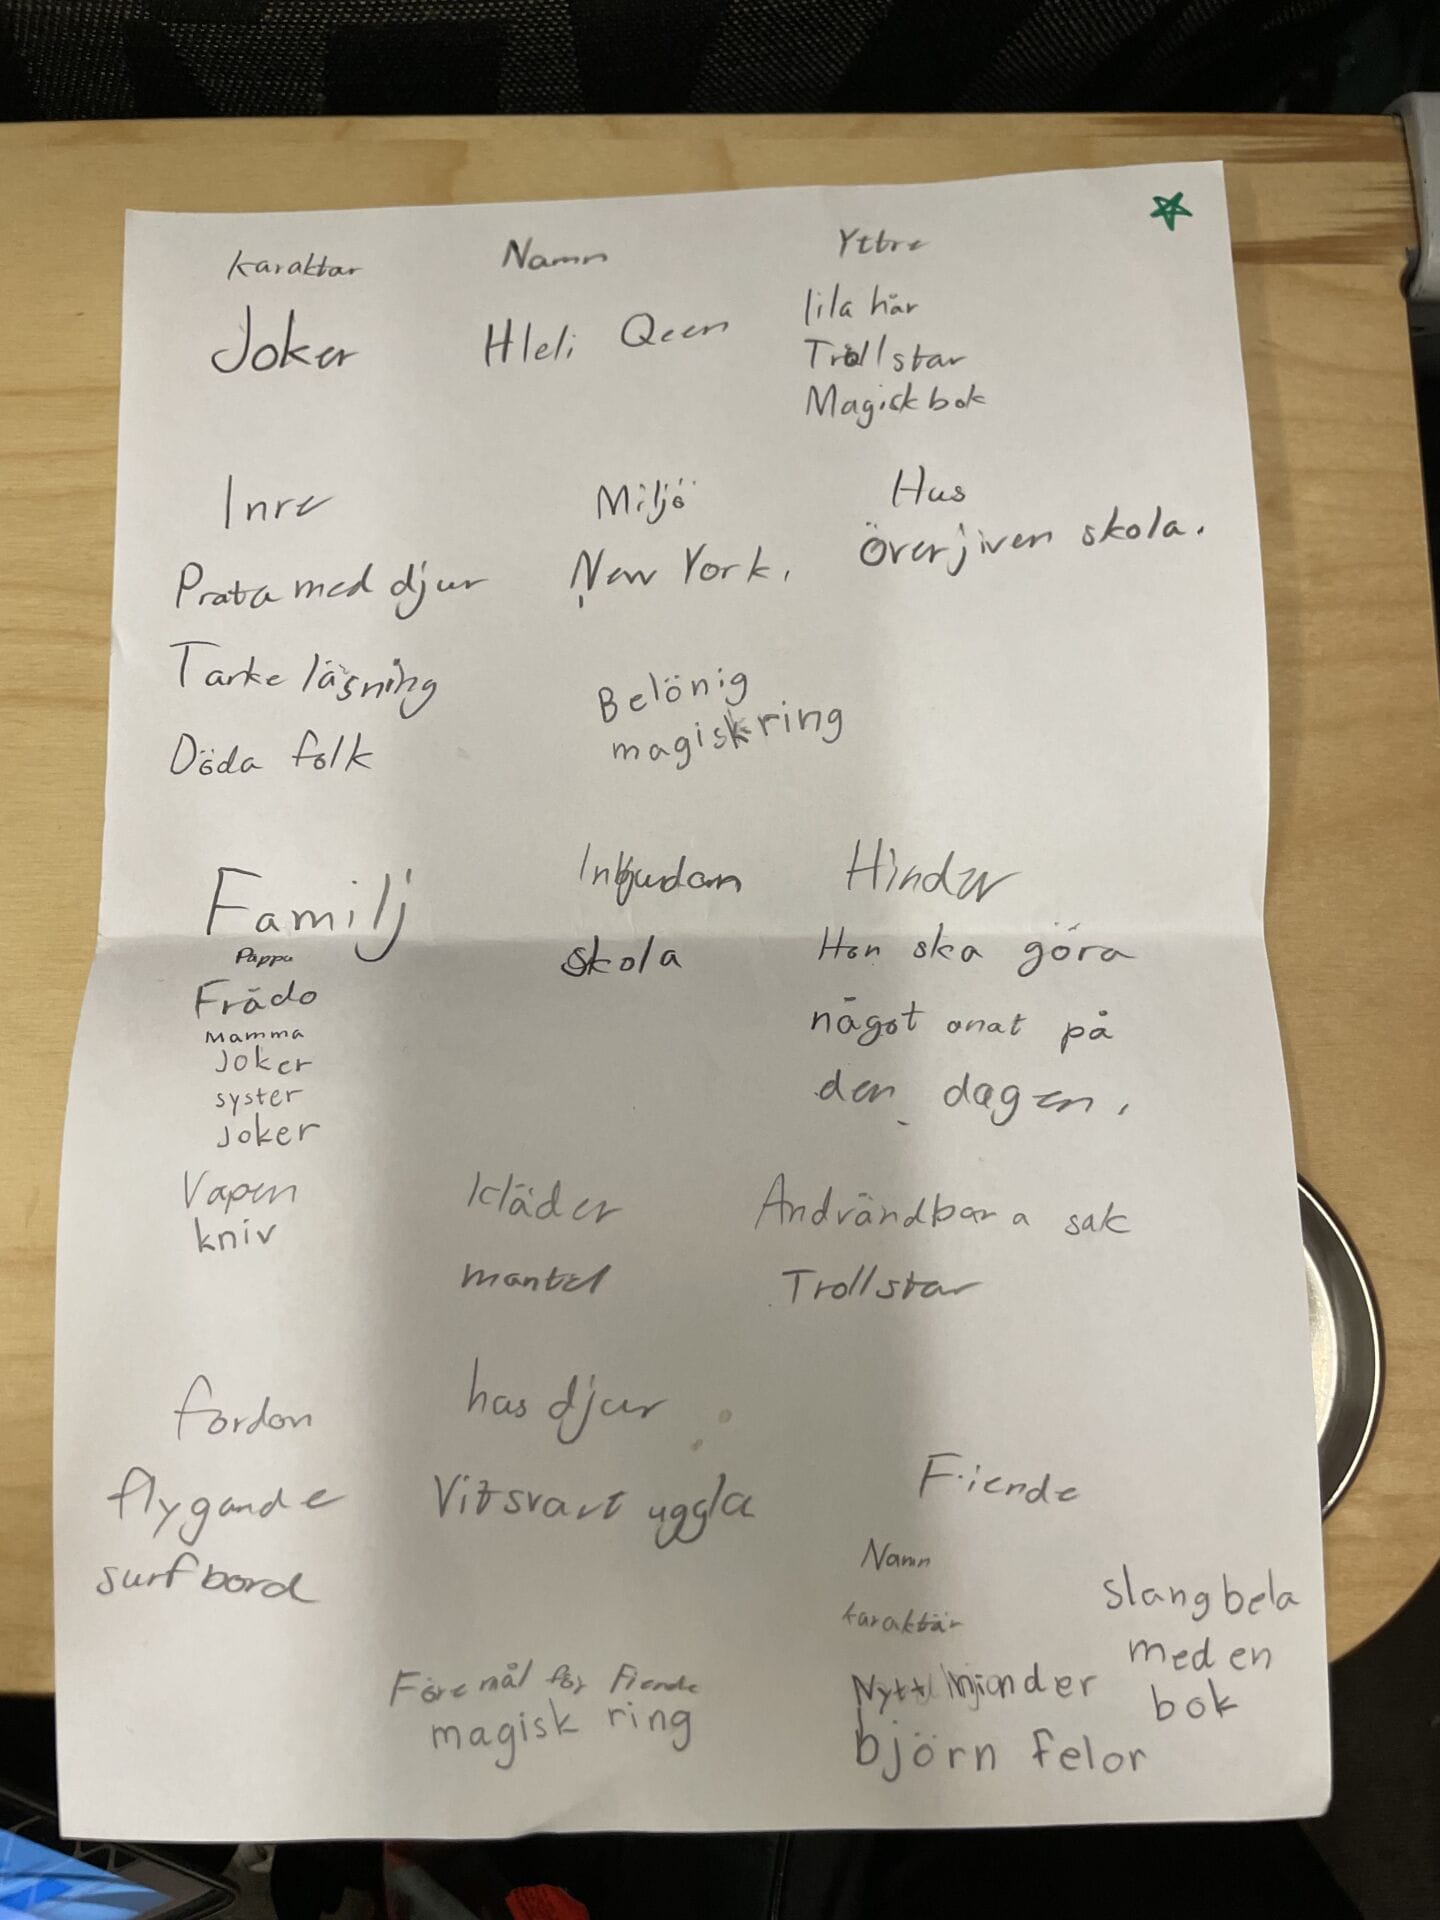 karaktar
Joker
Namn
Hleli Qeen
Yttre
lila hår
Trollstar
Magisk bok
Inre
Prata med djur
Tanke läsning
Döda folk
Miljö
New York.
Hus
Överjiven skola.
Belönig
magisk ring
Familj
Pappa
Frädo
Mamma
Joker
syster
Joker
Inbjudan
skola
Hinder
Hon ska göra
något anat på
den dagen.
Vapen
kniv
kläder
mantel
Andvändbara sak
Trollstar
fordon
flygande
surfbord
hus djur
Vitsvart uggla
Fiende
Namn
karaktär
björn felor
slangbela
med en
bok
Före mål för Fiende
magisk ring